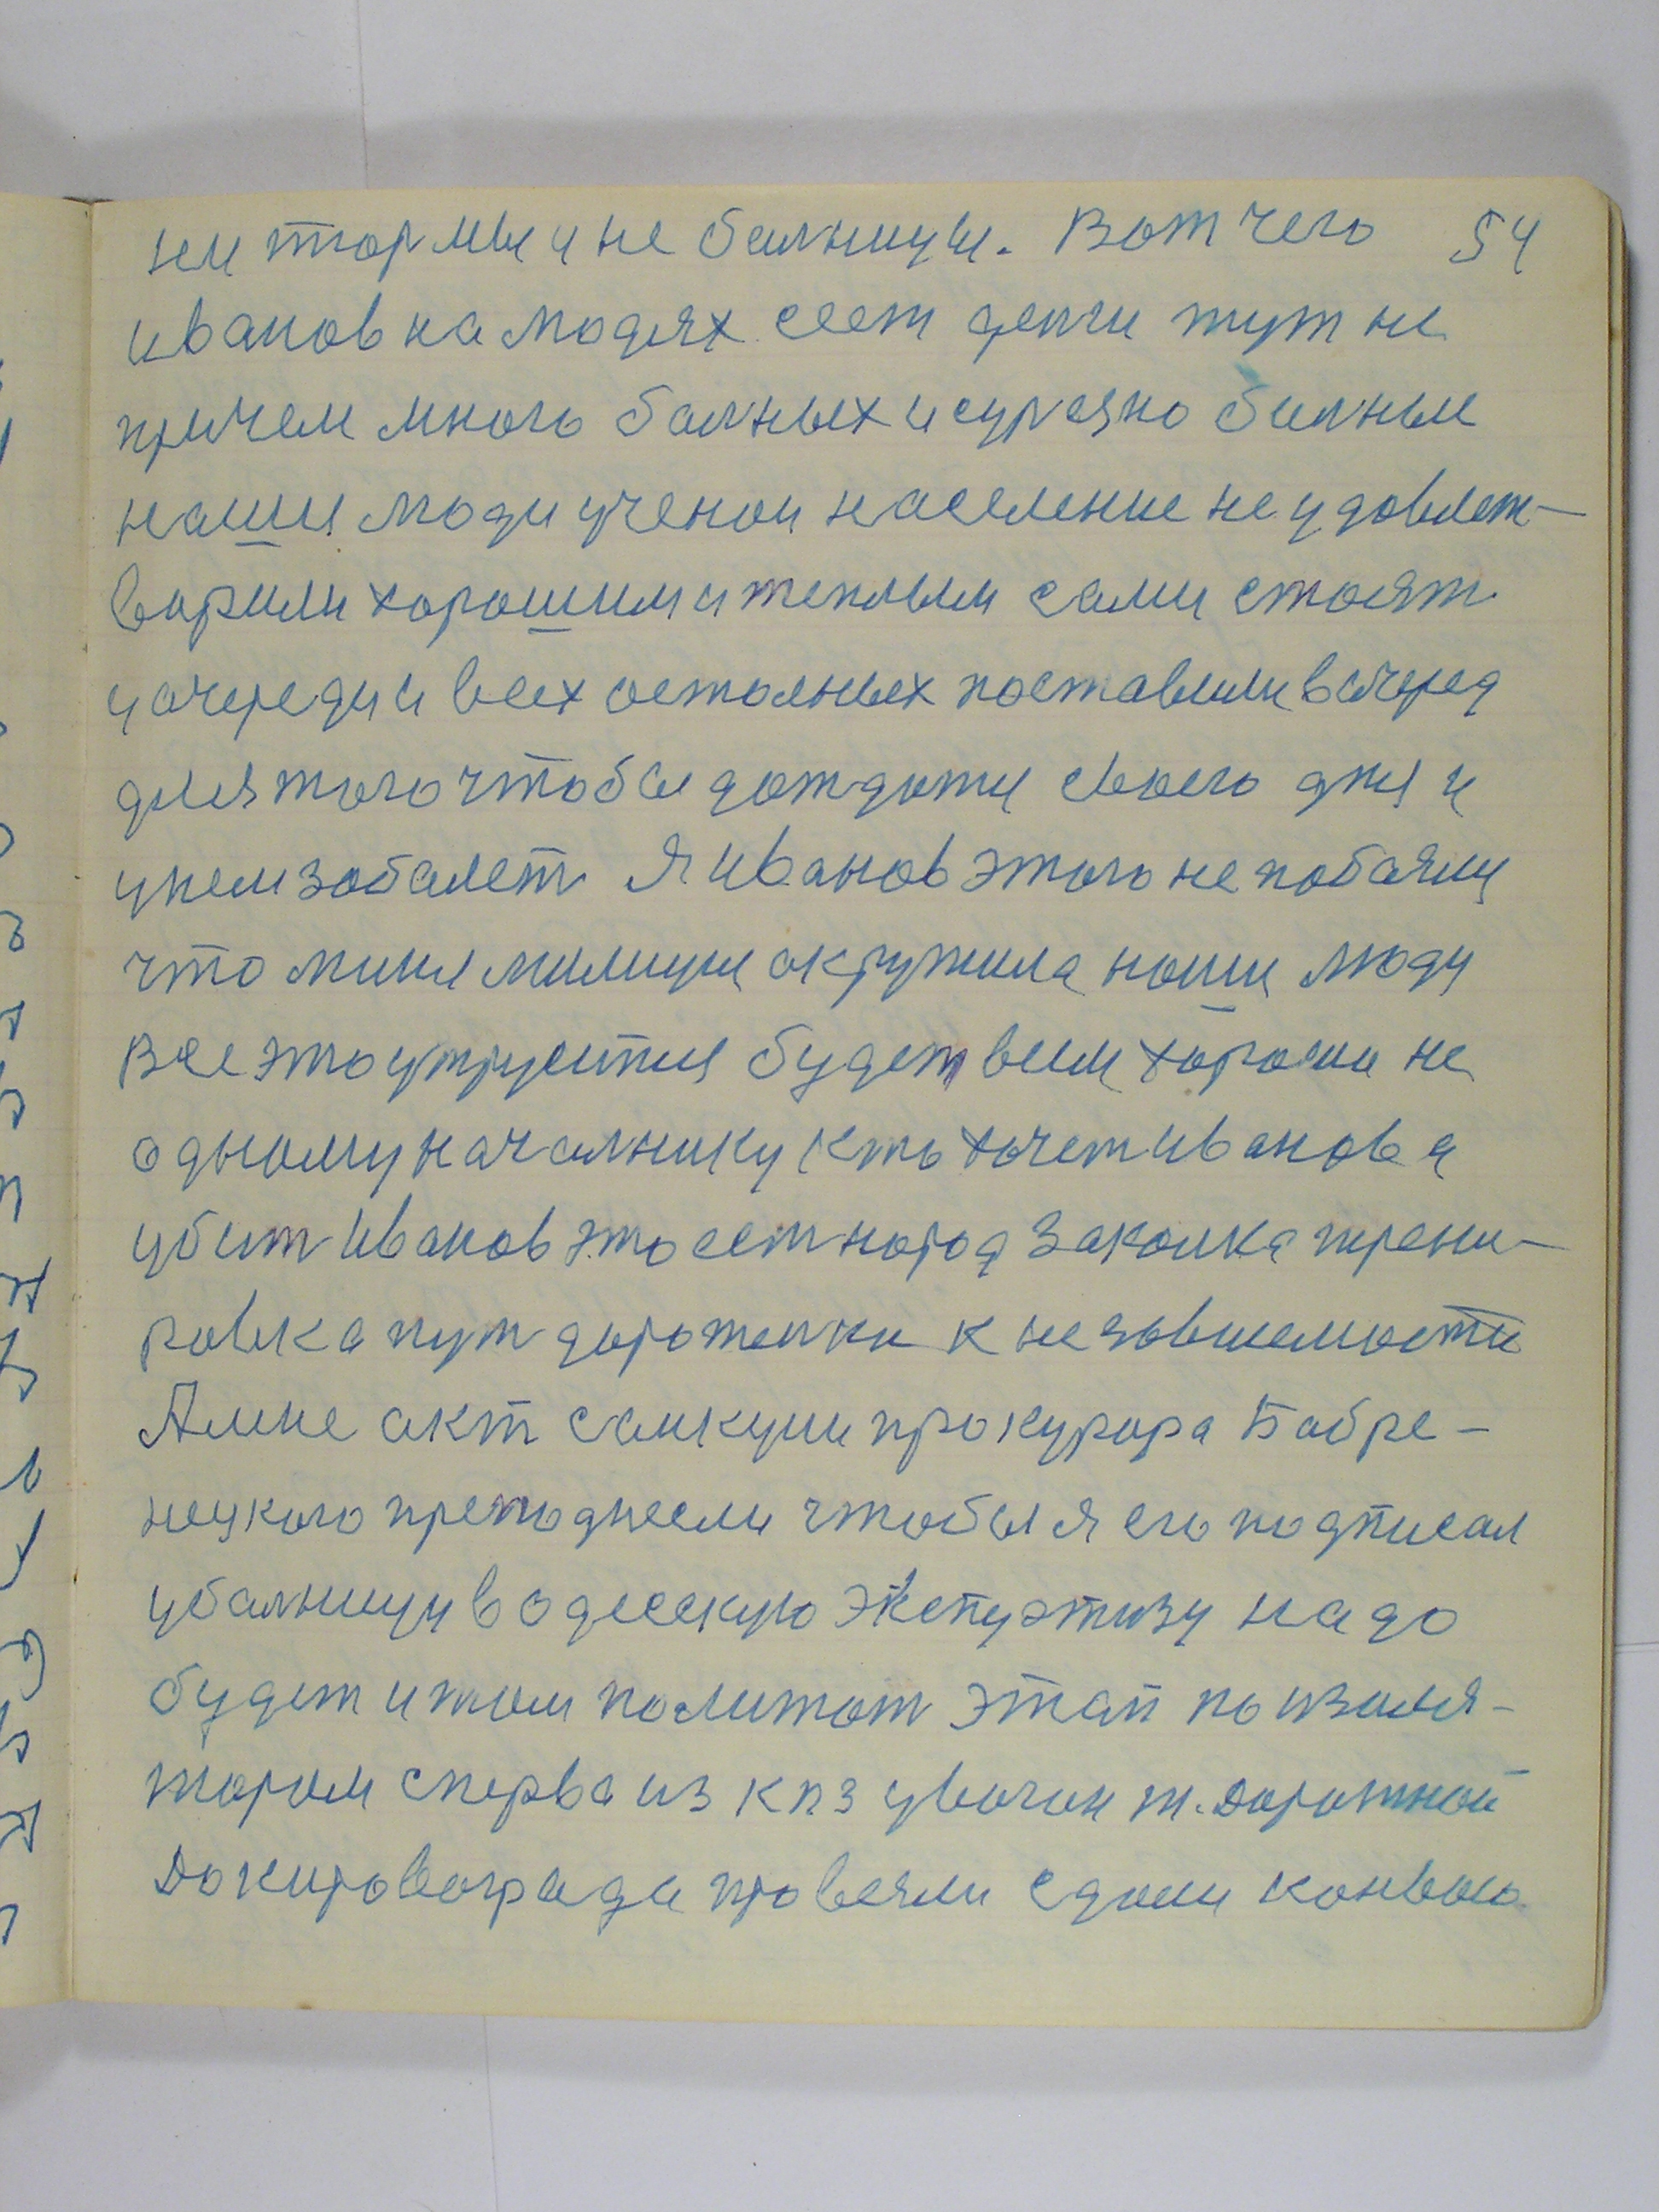 ни тюрмы и не балницы. Вот чего 54
иванов на людях сеет денги тут не
причем много балных и сурезно билные
наши люди ученои население не удовлет-
варили хорошим и теплым сами стоят
у очереди и всех осталных поставили в очеред
для того чтобы дождати своего дня и
у нем забалет Я иванов этого не побаялу
что миня милиция акружила наши люди
Все это утрусится будет всем хорошо не
одному началнику кто хочет иванова
убит Иванов это ест народ Закалка трени-
ровка пут дороженки к незовисемости
А мне акт санкции прокурора Бобре-
нецкого преподнесли чтобы я его подписал
у балницу в одесскую экспертизу надо
будет и там полижат этап по изаля-
торам сперва из кпз у вагон ж. Дорожной
До кировограда провезли сдали конвою